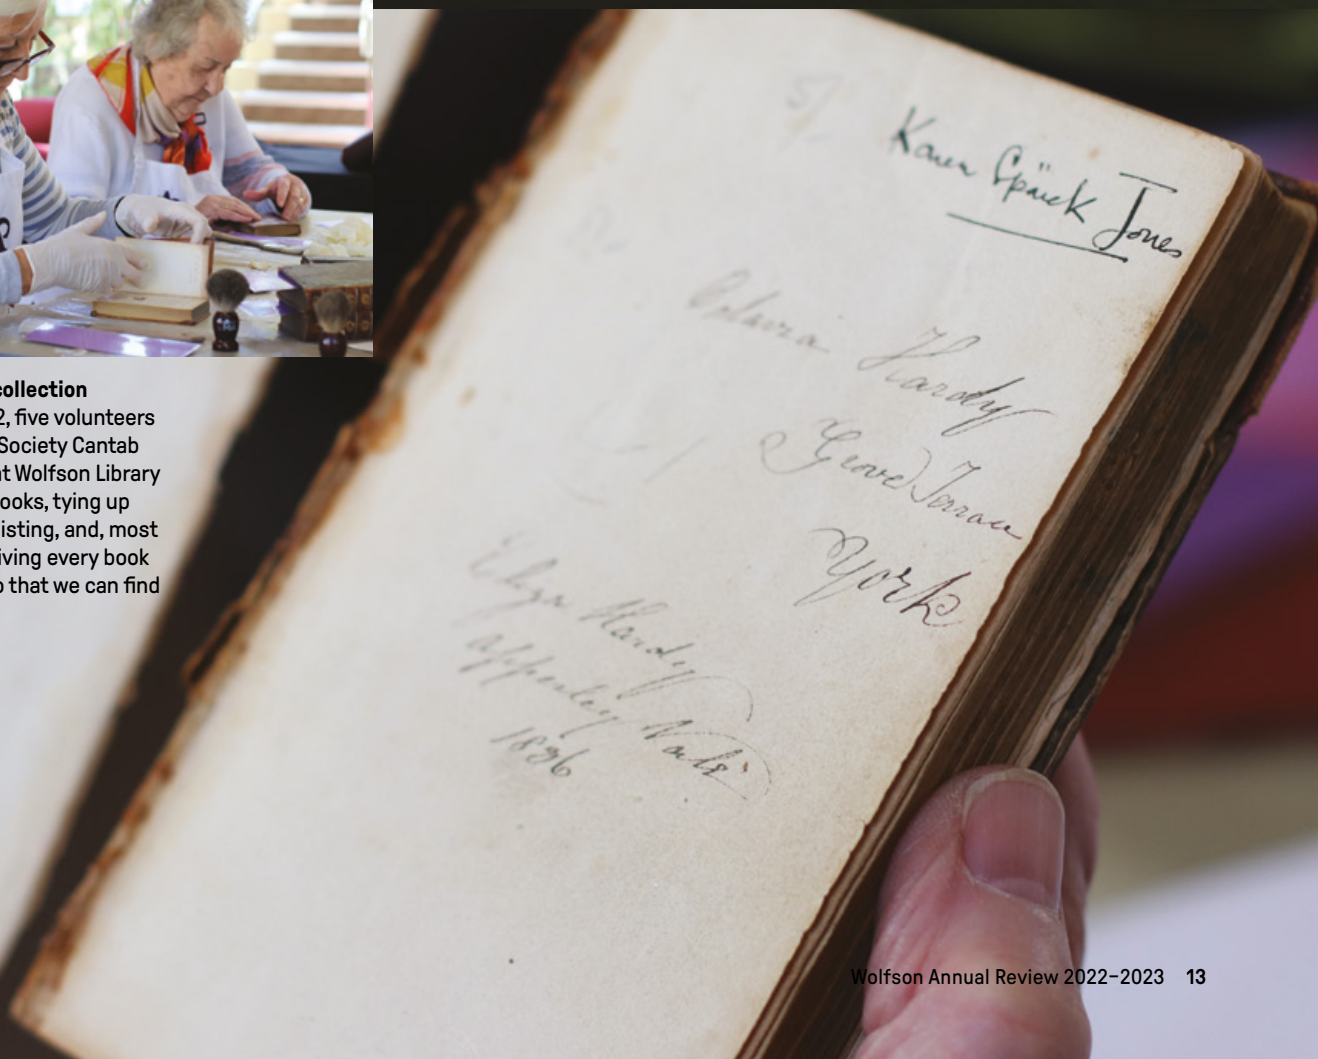 collection
2, five volunteers
Society Cantab
at Wolfson Library
ooks, tying up
isting, and, most
iving every book
o that we can find
Karen Spärck Jones
Hardy
Grove Terrace
York
Eliza Hardy
Apperley
1836
Wolfson Annual Review 2022–2023 13